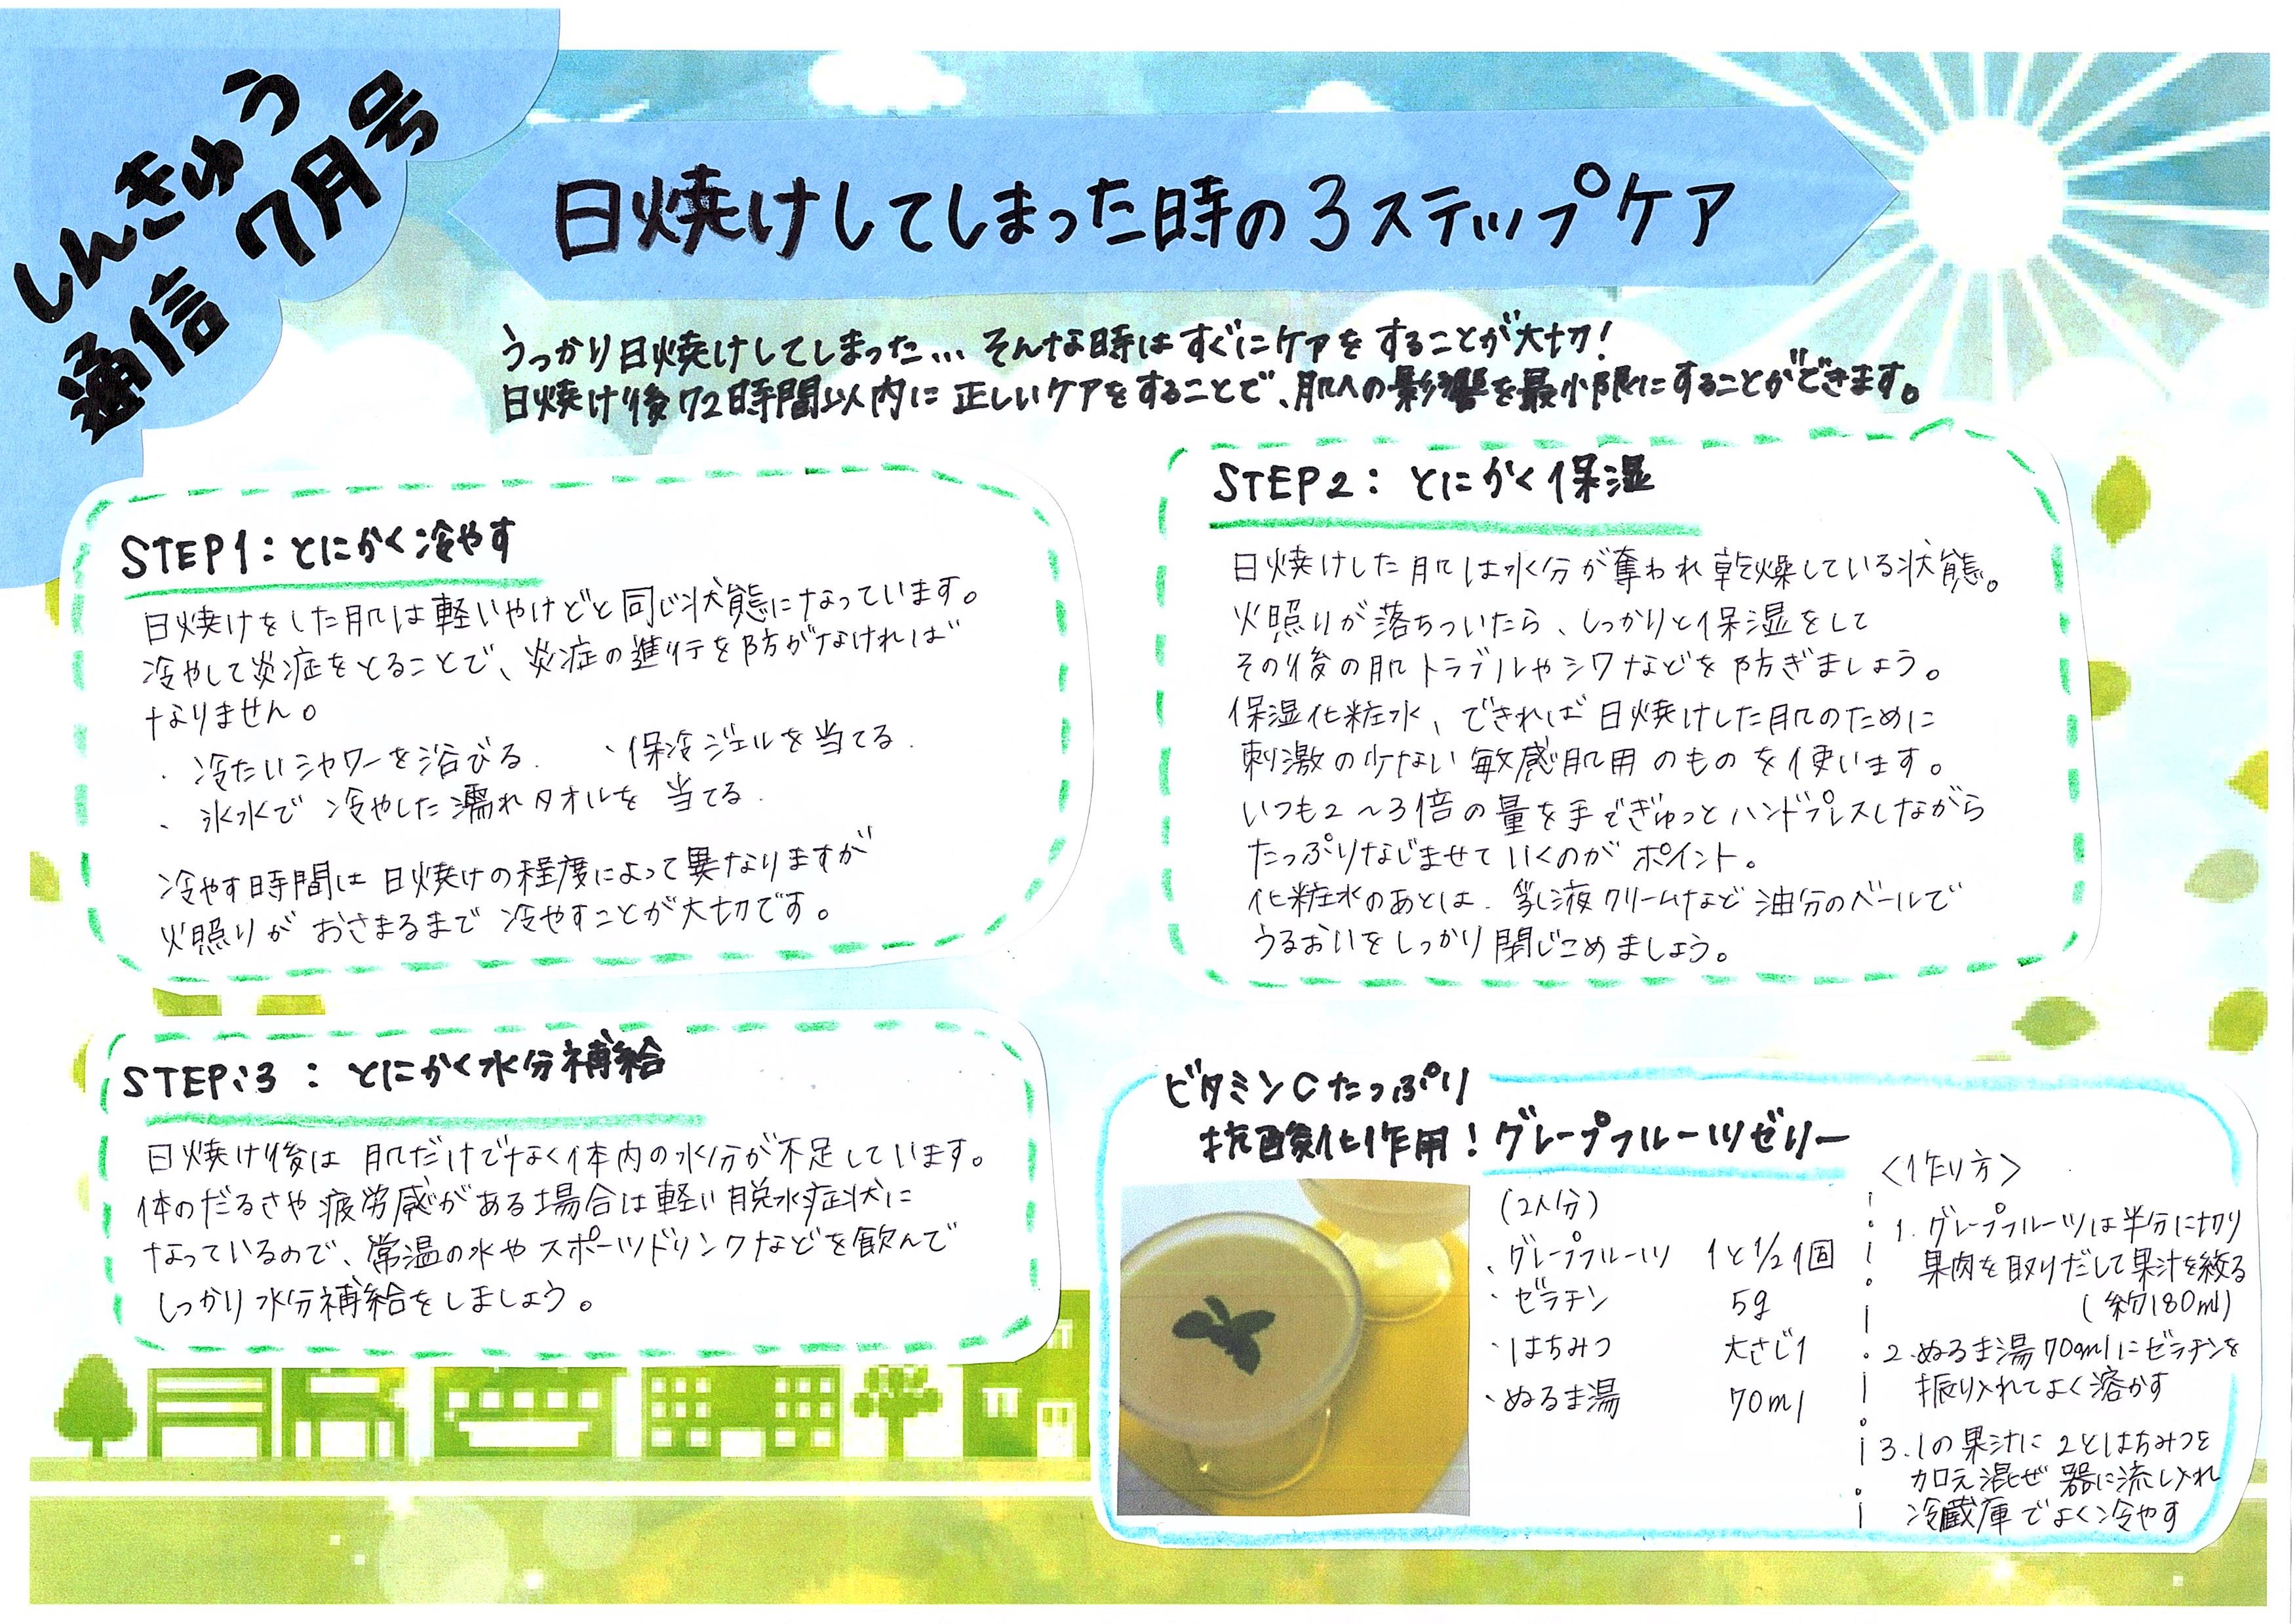 しんきゅう
通信 7月号
日焼けしてしまった時の3ステップケア
うっかり日焼けしてしまった... そんな時はすぐにケアをすることが大切!
日焼け後72時間以内に正しいケアをすることで、肌への影響を最小限にすることができます。
STEP1:とにかく冷やす
日焼けをした肌は軽いやけどと同じ状態になっています。
冷やして炎症をとることで、炎症の進行を防がなければ
なりません。
・冷たいシャワーを浴びる. ・保冷ジェルを当てる.
・氷水で冷やした濡れタオルを当てる.
冷やす時間は日焼けの程度によって異なりますが
火照りがおさまるまで冷やすことが大切です。
STEP2:とにかく保湿
日焼けした肌は水分が奪われ乾燥している状態。
火照りが落ちついたら、しっかりと保湿をして
その後の肌トラブルやシワなどを防ぎましょう。
保湿化粧水、できれば日焼けした肌のために
刺激の少ない敏感肌用のものを使います。
いつも2〜3倍の量を手でぎゅっとハンドプレスしながら
たっぷりなじませていくのがポイント。
化粧水のあとは、乳液クリームなど油分のベールで
うるおいをしっかり閉じこめましょう。
STEP:3:とにかく水分補給
日焼け後は肌だけでなく体内の水分が不足しています。
体のだるさや疲労感がある場合は軽い脱水症状に
なっているので、常温の水やスポーツドリンクなどを飲んで
しっかり水分補給をしましょう。
ビタミンCたっぷり
抗酸化作用!グレープフルーツゼリー
(2人分)
・グレープフルーツ 1と1/2個
・ゼラチン 5g
・はちみつ 大さじ1
・ぬるま湯 70ml
<作り方>
1.グレープフルーツは半分に切り
果肉を取りだして果汁を絞る
(約180ml)
2.ぬるま湯70mlにゼラチンを
振り入れてよく溶かす
3.1の果汁に2とはちみつを
加え混ぜ器に流し入れ
冷蔵庫でよく冷やす